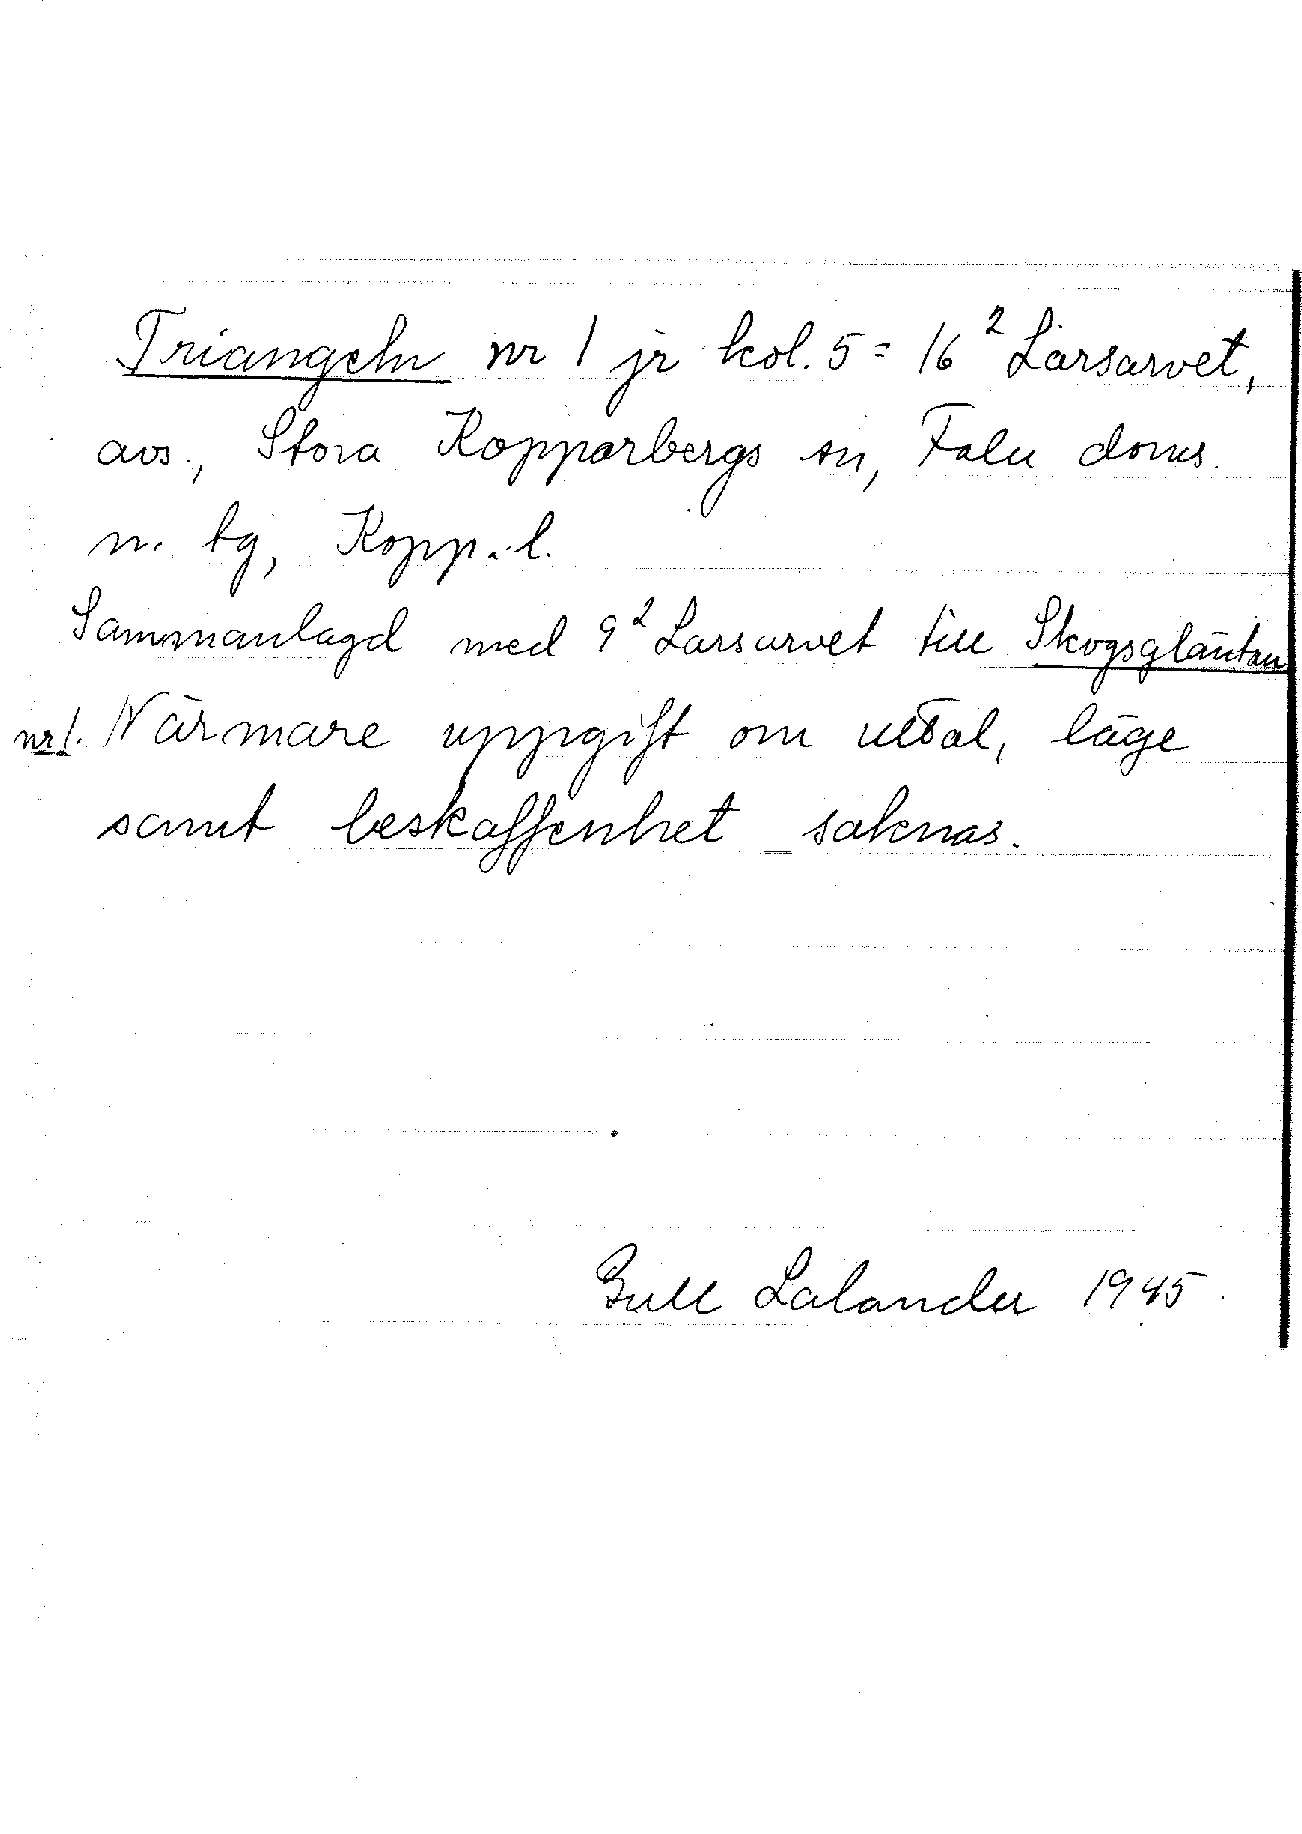 Triangeln nr 1 jr kol. 5 = 16² Larsarvet,
avs., Stora Kopparbergs sn, Falu doms.
n. tg, Kopp.l.
Sammanlagd med 9² Larsarvet till Skogsgläntan
nr 1. Närmare uppgift om uttal, läge
samt beskaffenhet saknas.
Gull Lalander 1945.